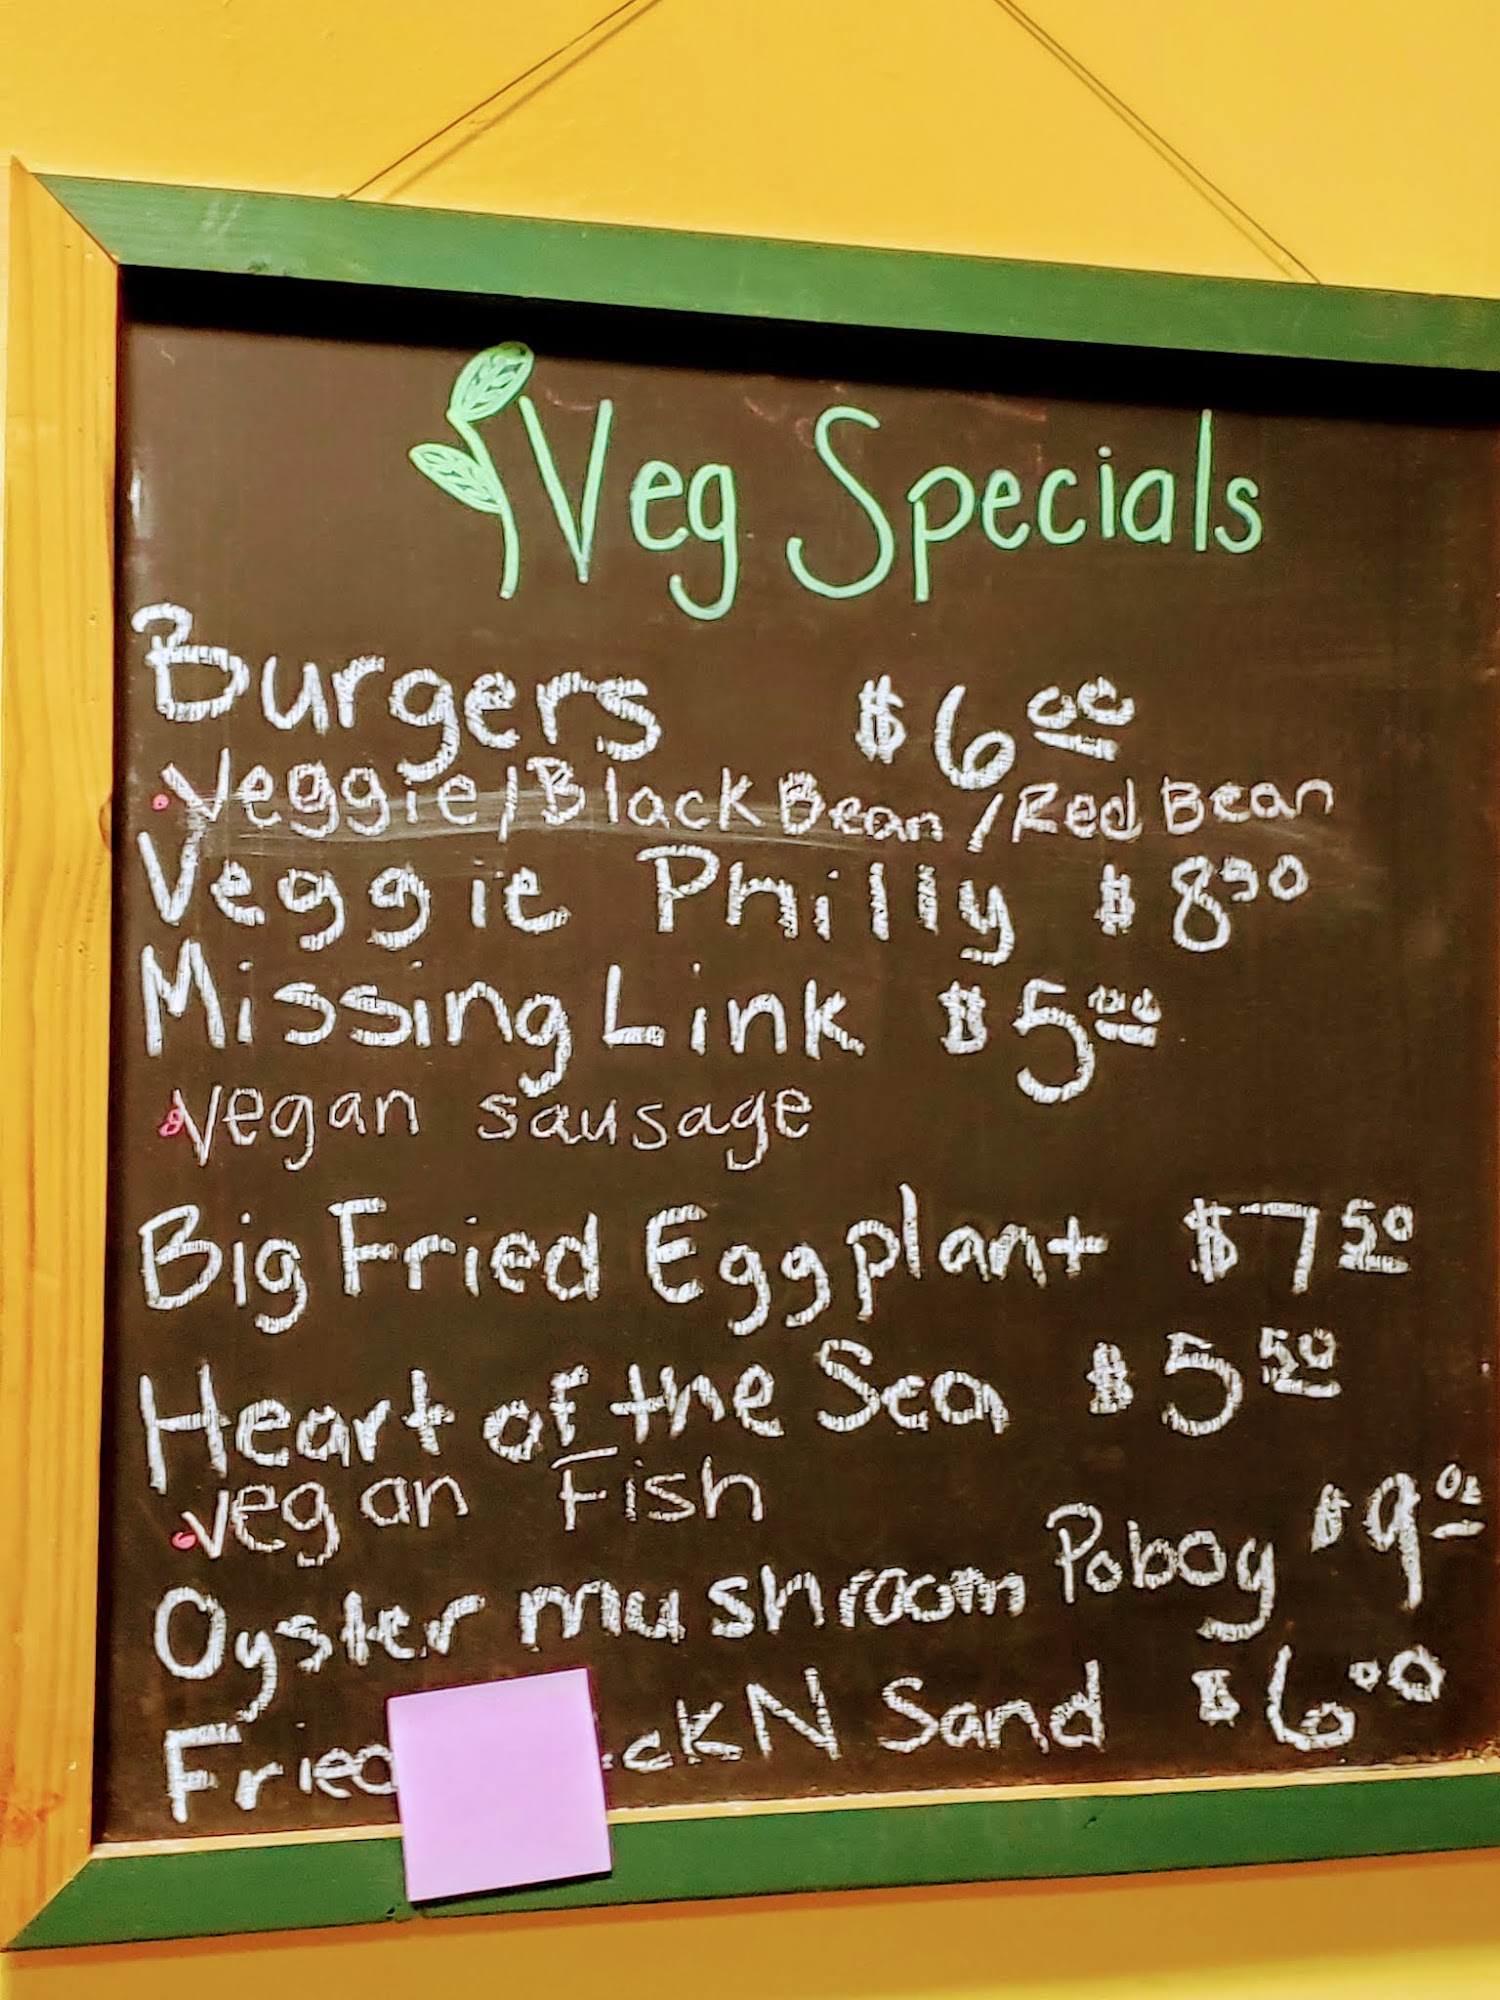 Veg Specials
Burgers $6 00
• Veggie/Black Bean/Red Bean
Veggie Philly $8 50
Missing Link $5 00
• Vegan sausage
Big Fried Eggplant $7 50
Heart of the Sea $5 50
• Vegan Fish
Oyster mushroom Poboy $9 00
Fried ckN Sand $6 00